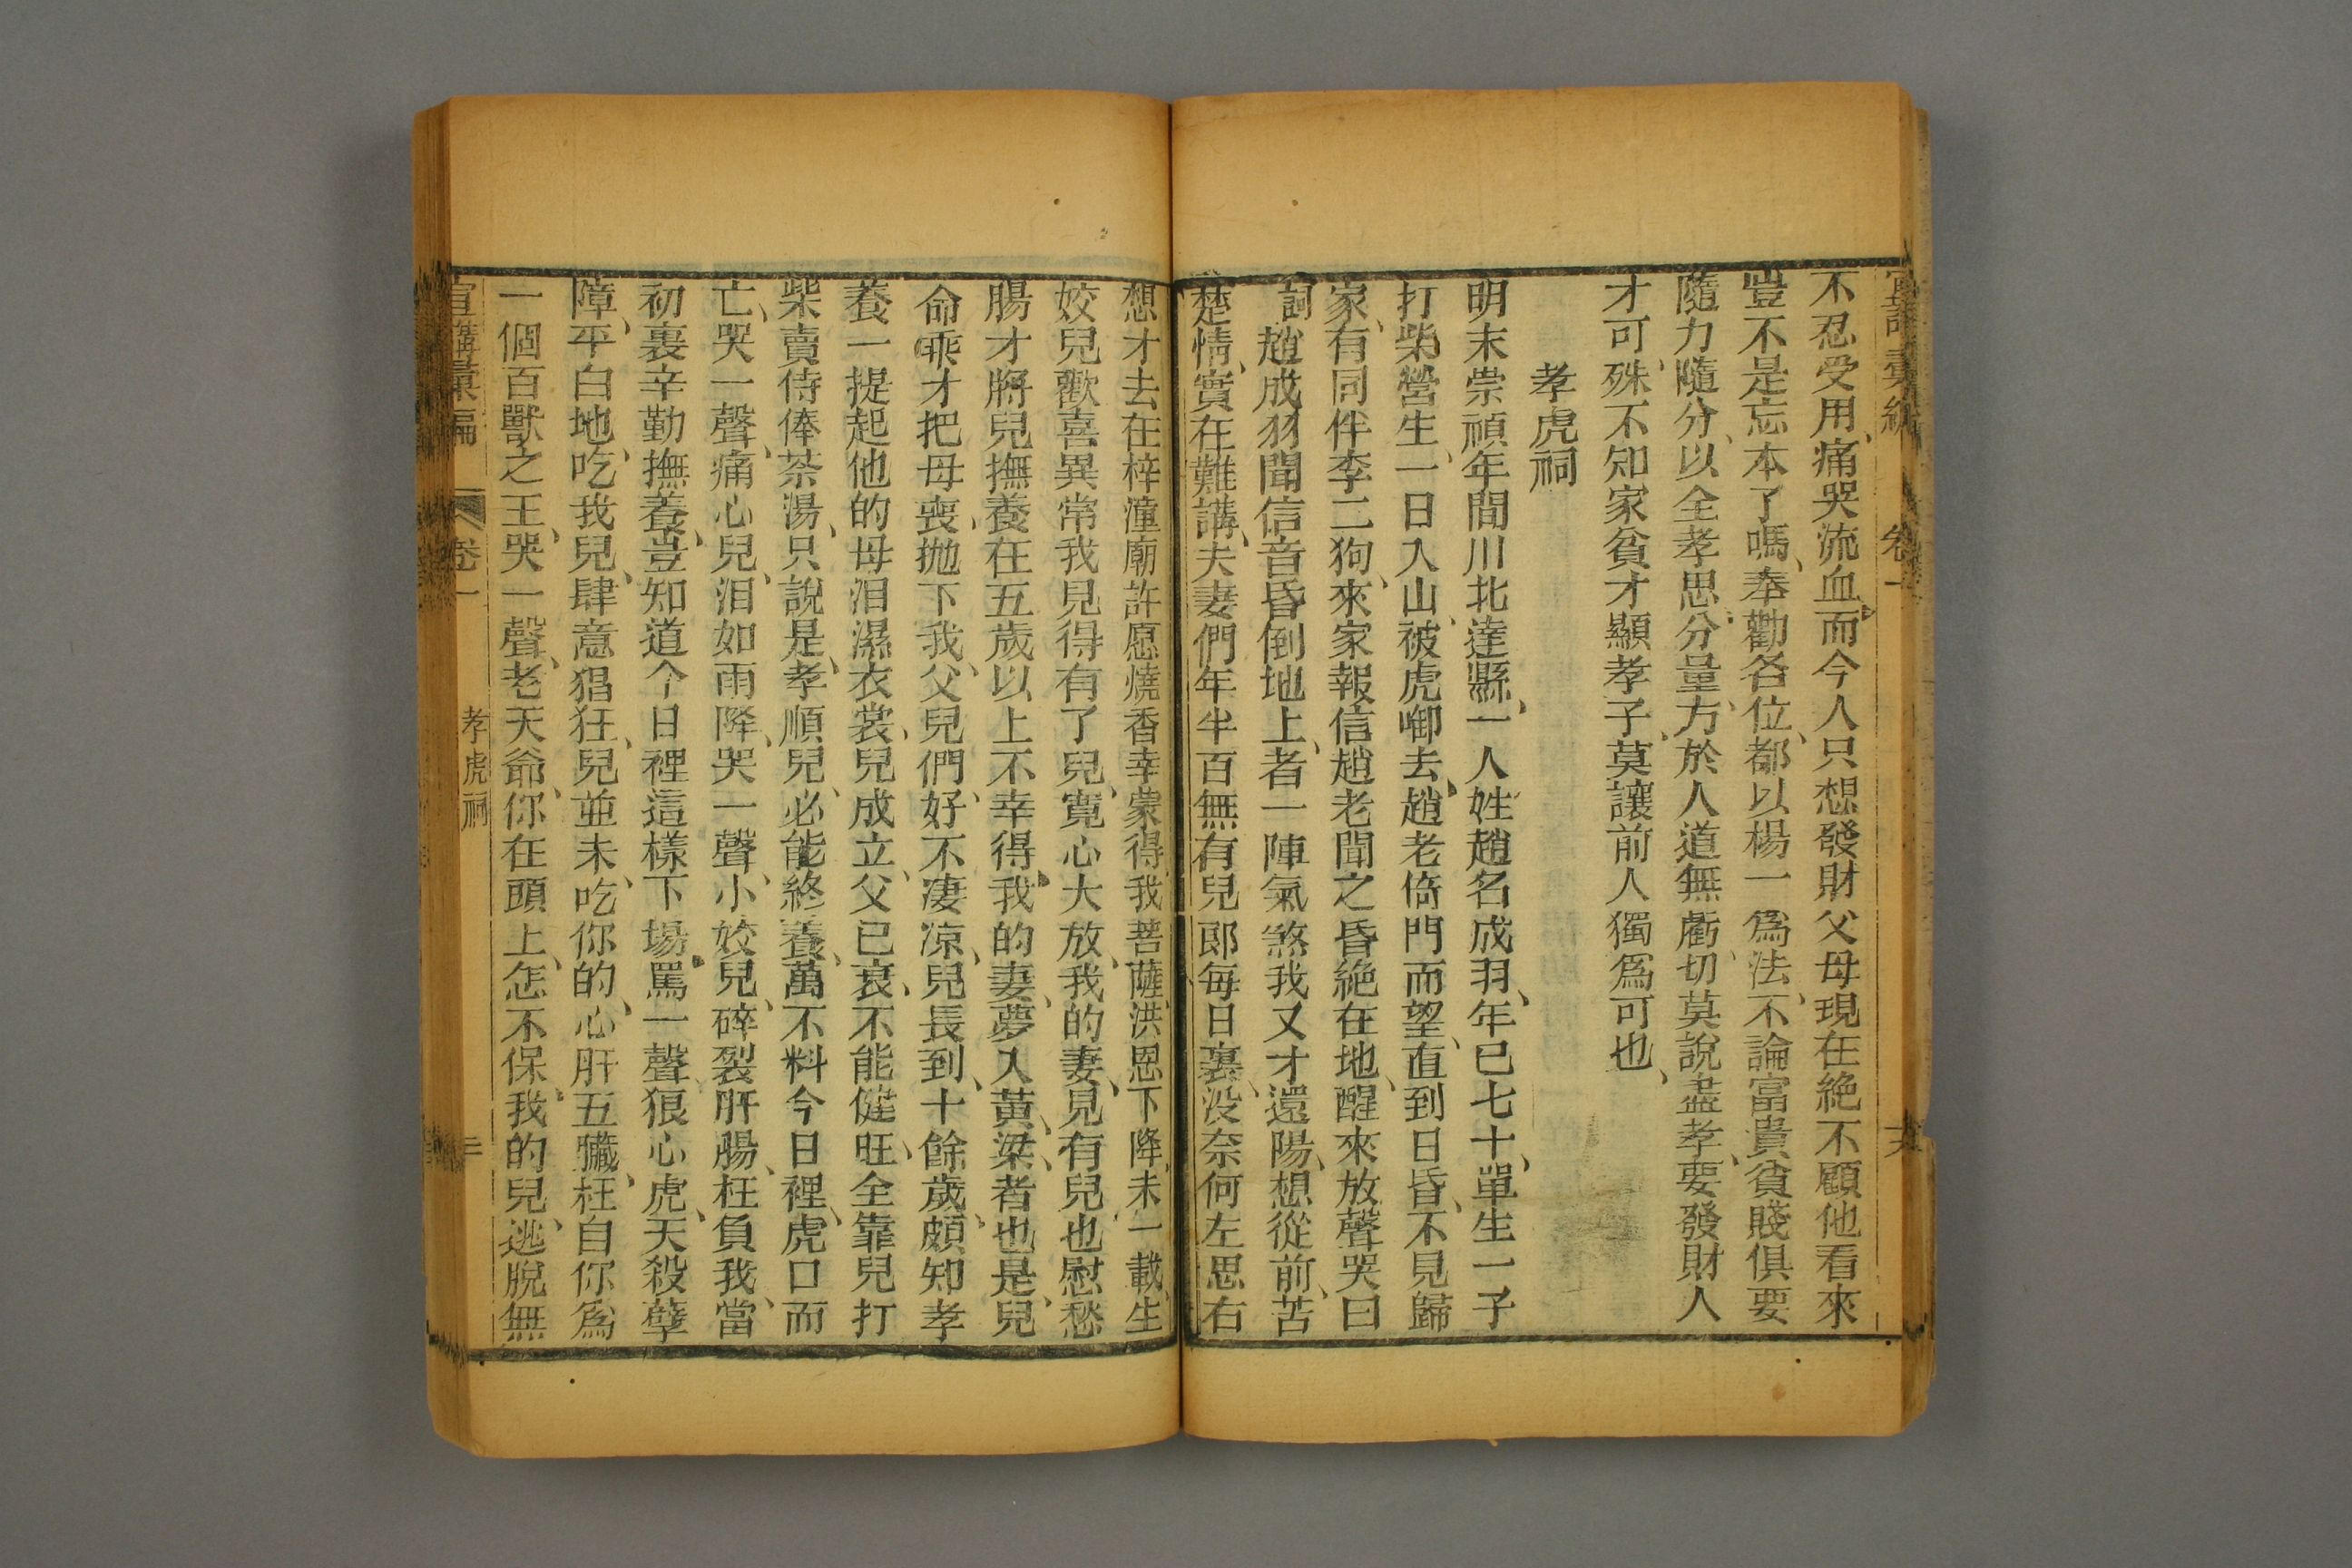 宣講彙編 卷一
不忍受用、痛哭流血、而今人只想發財父母現在絶不顧他看來
豈不是忘本了嗎、奉勸各位、都以楊一爲法、不論富貴貧賤俱要
隨力隨分、以全孝思分量、方於人道無虧、切莫說盡孝、要發財人
才可、殊不知家貧才顯孝子、莫讓前人獨爲可也、
孝虎祠
明末崇禎年間川北達縣、一人姓趙名成羽、年已七十、單生一子
打柴營生、一日入山、被虎啣去、趙老倚門而望、直到日昏、不見歸
家、有同伴李二狗、來家報信趙老聞之昏絶在地、醒來放聲哭曰
詞 趙成羽聞信音昏倒地上、者一陣氣煞我又才還陽、想從前、苦
楚情、實在難講、夫妻們年半百無有兒郎每日裏、没奈何左思右
想才去在梓潼廟許愿燒香幸蒙得、我菩薩、洪恩下降、未一載、生
姣兒歡喜異常我見得有了兒、寬心大放、我的妻、見有兒也慰愁
腸才將兒撫養在五歲以上不幸得、我的妻、夢入黃粱、者也是、兒
命乖才把母喪、抛下我、父兒們、好不凄凉、兒長到、十餘歲、頗知孝
養一提起他的母泪濕衣裳、兒成立、父已衰、不能健旺、全靠兒打
柴賣侍俸茶湯、只說是、孝順兒、必能終養、萬不料今日裡、虎口而
亡、哭一聲、痛心兒、泪如雨降、哭一聲、小姣兒、碎裂肝腸、枉負我、當
初裏辛勤撫養、豈知道今日裡這樣下場、罵一聲、狠心虎、天殺孽
障、平白地、吃我兒、肆意猖狂、兒並未、吃你的、心肝五臟、枉自你爲
一個百獸之王、哭一聲、老天爺、你在頭上、怎不保、我的兒、逃脫無
宣講彙編 卷一 孝虎祠 二